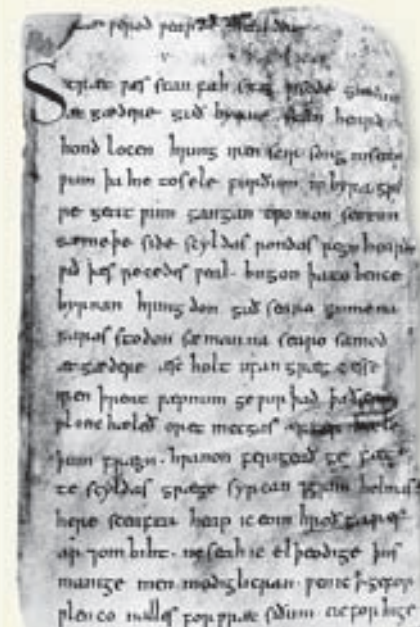 V
Stræt ƿæs stan fah stig ƿisode gumum
æt gædere guð byrne scan heard
hond locen hring iren scir song in searƿum þa hie to sele furðum in hyra gryre
geat ƿum gangan cƿomon setton
sæmeþe side scyldas rondas regn hearde
ƿið þæs recedes ƿeal · bugon þa to bence
byrnan hring don guð searo gumena
garas stodon sæ manna searo samod
æt gædere æsc holt ufan græg ƿæs se
iren þreat ƿæpnum ge ƿur þad þa ðær
ƿlonc hæleð oret mecgas æfter
frægn · hƿanon ferigeað ge fæt
te scyldas græge syrcan ⁊ grim helmas
here sceafta heap ic eom hroð gares
ar ⁊ om biht · ne seah ic el þeodige þus
manige men modiglicran · ƿen ic þ ge for
ƿlenco nalles for ƿræc siðum ac for hige